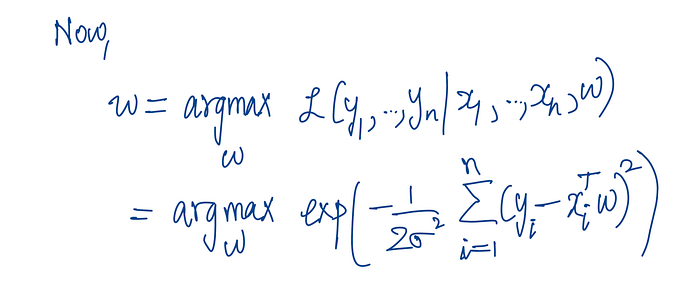 Now,
w = argmax_w L(y₁, .., yₙ | x₁, .., xₙ, w)
= argmax_w exp(-1/(2σ²) ∑_{i=1}^{n} (yᵢ - xᵢᵀw)²)